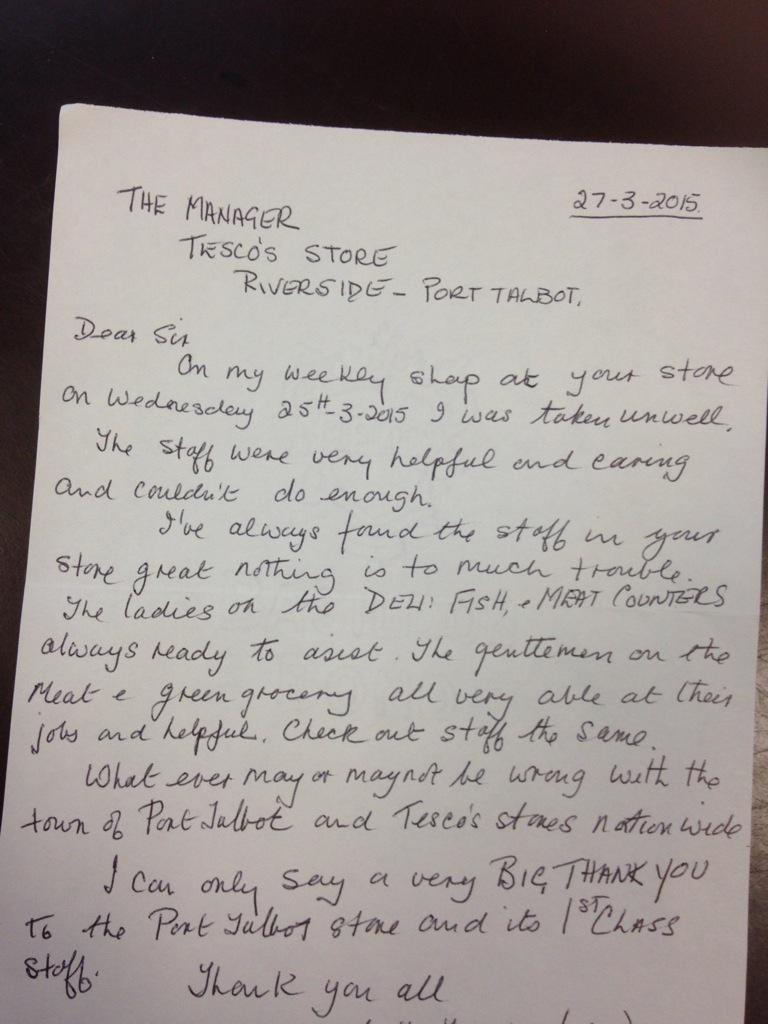 27-3-2015.
THE MANAGER
TESCO'S STORE
RIVERSIDE - PORT TALBOT.
Dear Sir
On my weekly shop at your store
on Wednesday 25TH-3-2015 I was taken unwell.
The staff were very helpful and caring
and couldn't do enough.
I've always found the staff in your
store great nothing is to much trouble.
The ladies on the DELI: FISH, & MEAT COUNTERS
always ready to asist. The gentlemen on the
Meat & green grocery all very able at their
jobs and helpful. Check out staff the same.
What ever may or maynot be wrong with the
town of Port Talbot and Tesco's stores nation wide
I can only say a very BIG, THANK YOU
To the Port Talbot store and its 1ST CLASS
staff.
Thank you all